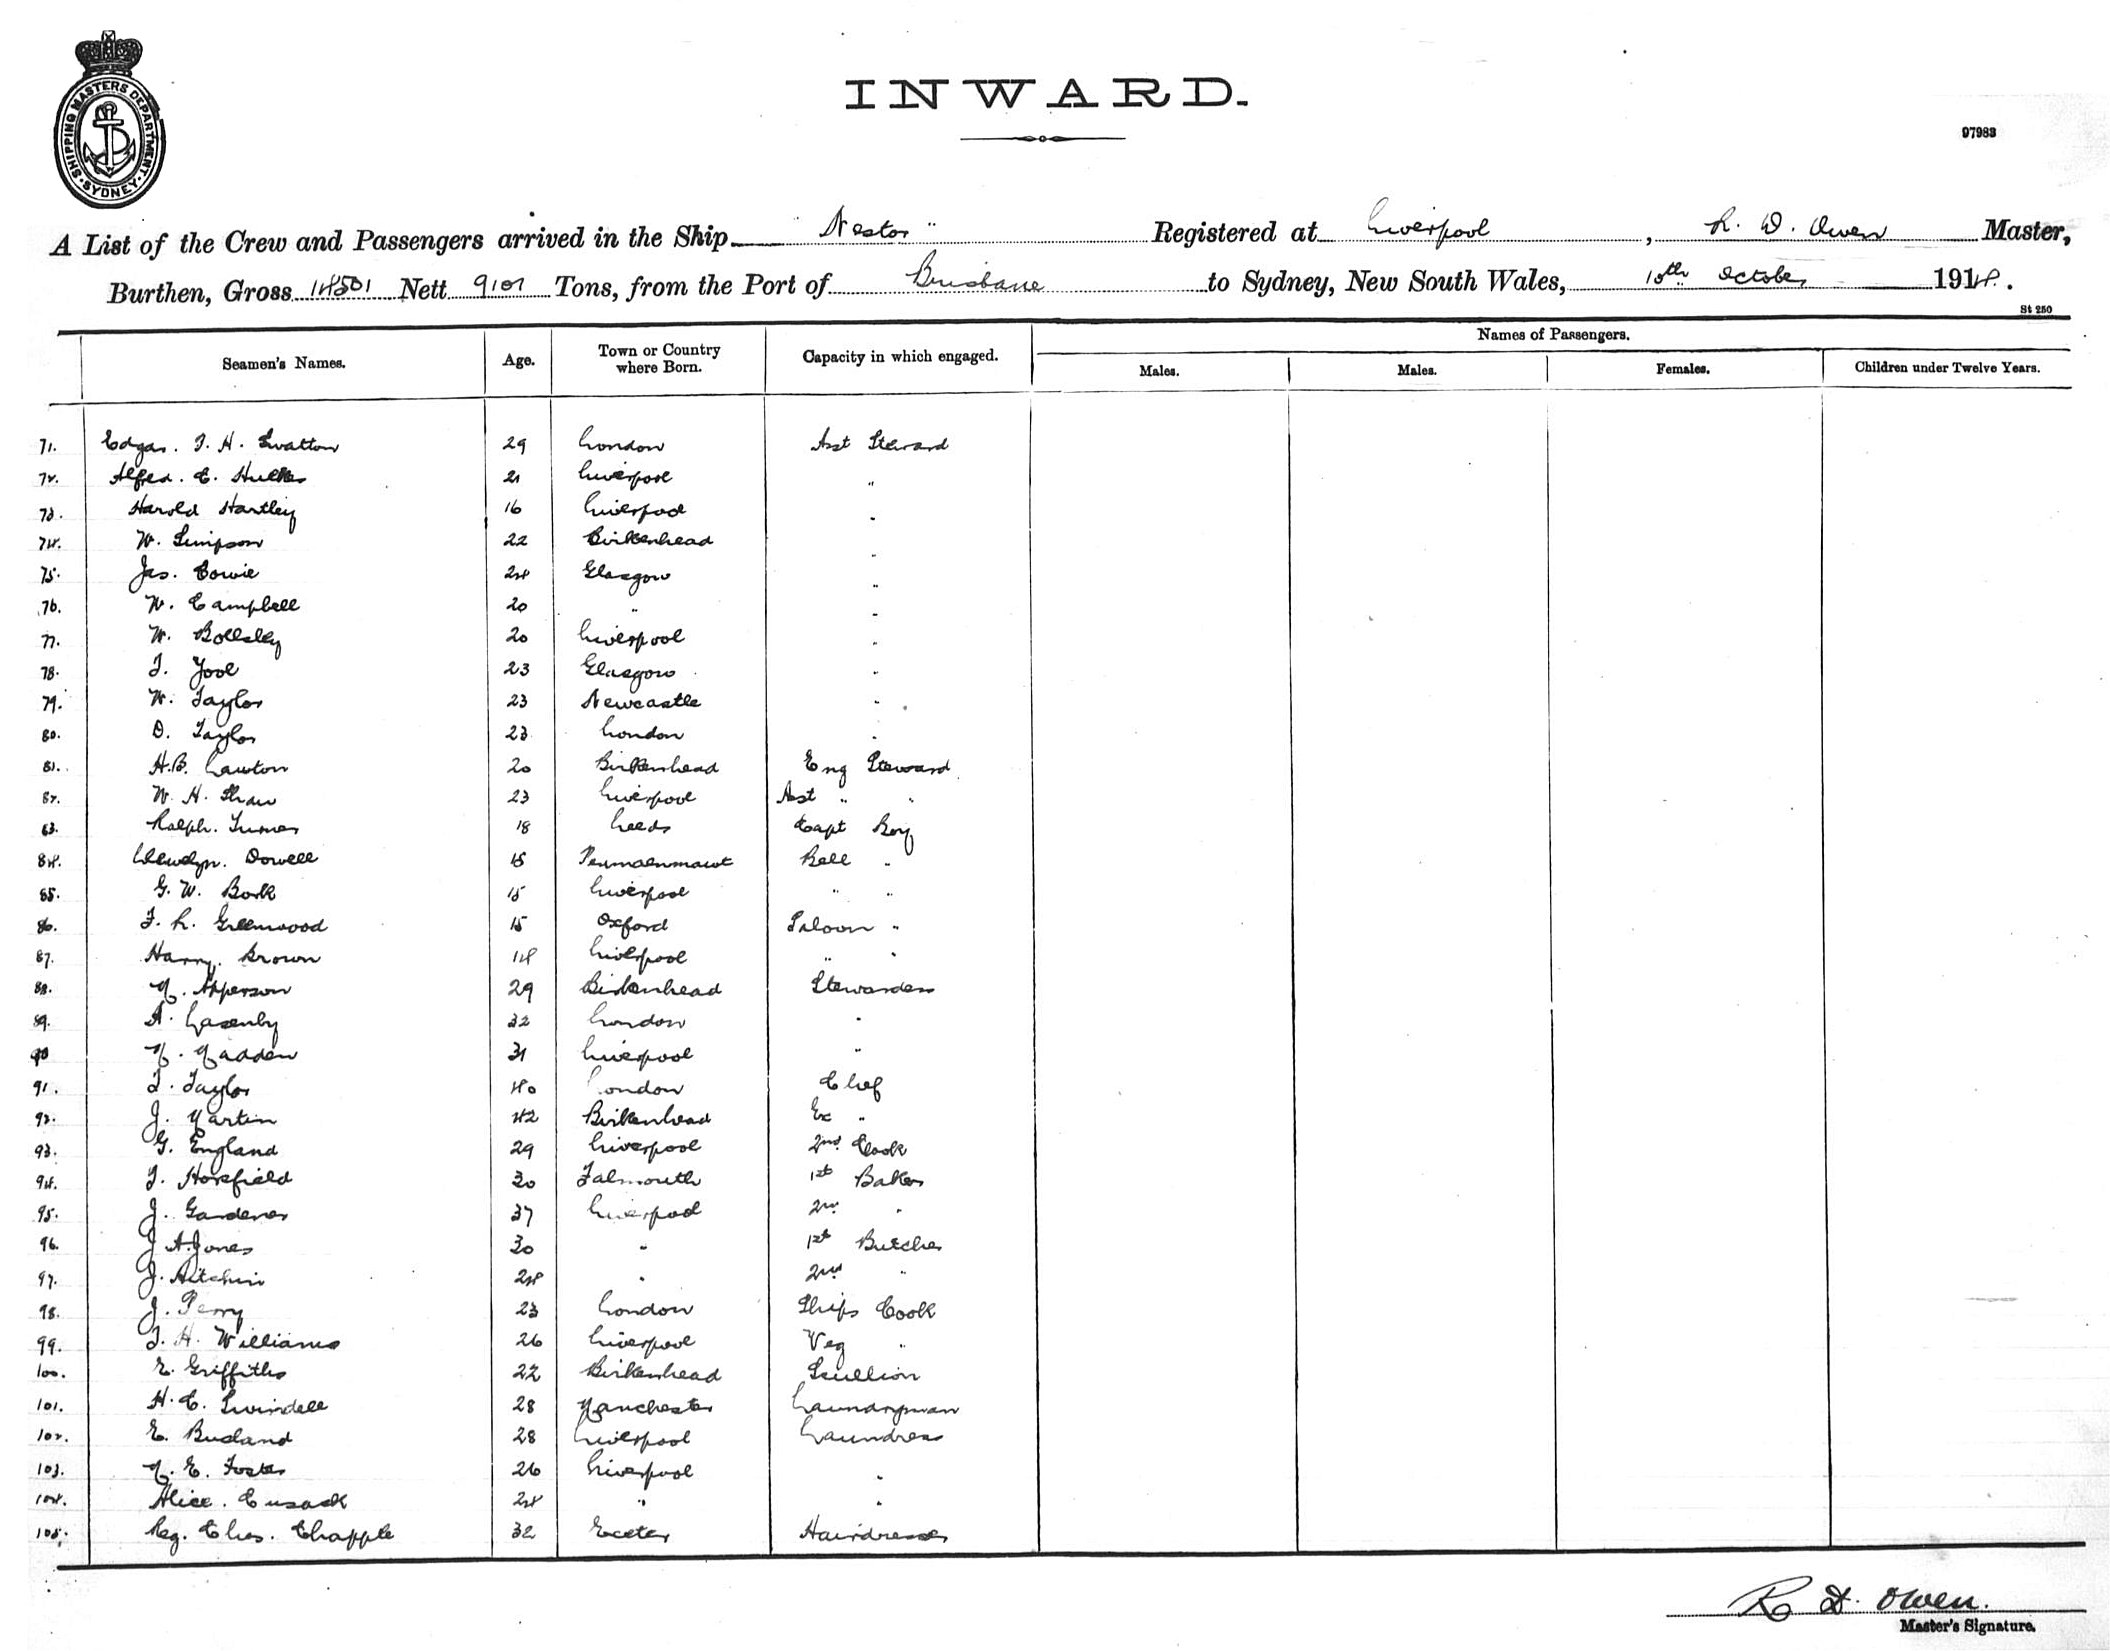 SHIPPING MASTERS DEPARTMENT · SYDNEY ·
INWARD.
97983
A List of the Crew and Passengers arrived in the Ship "Nestor" Registered at Liverpool, R. D. Owen Master,
Burthen, Gross 14501 Nett 9101 Tons, from the Port of Brisbane to Sydney, New South Wales, 10th October 1914.
St 250
Seamen's Names. Age. Town or Country where Born. Capacity in which engaged. Names of Passengers.
Males. Males. Females. Children under Twelve Years.
71. Edgar. T. H. Swatton 29 London Asst Steward
72. Alfred. E. Hulks 21 Liverpool "
73. Harold Hartley 16 Liverpool "
74. W. Simpson 22 Birkenhead "
75. Jas. Cowie 24 Glasgow "
76. W. Campbell 20 " "
77. W. Bollsley 20 Liverpool "
78. T. Yool 23 Glasgow "
79. W. Taylor 23 Newcastle "
80. D. Taylor 23 London "
81. H.B. Lawton 20 Birkenhead Eng Steward
82. W. H. Shaw 23 Liverpool Asst " "
83. Ralph. Turner 18 Leeds Capt Boy
84. Llewelyn. Dowell 15 Penmaenmawr Bell "
85. G. W. Bork 15 Liverpool " "
86. F. L. Greenwood 15 Oxford Saloon "
87. Harry. Brown 14 Liverpool " "
88. M. Apperson 29 Birkenhead Stewardess
89. A. Lazenby 32 London "
90 M. Madden 31 Liverpool "
91. T. Taylor 40 London Chef
92. J. Martin 42 Birkenhead Ex "
93. G. England 29 Liverpool 2nd Cook
94. T. Horsfield 30 Falmouth 1st Baker
95. J. Gardener 37 Liverpool 2nd "
96. J A. Jones 30 " 1st Butcher
97. J. Aitchin 24 " 2nd "
98. J. Perry 23 London Ships Cook
99. T. H. Williams 26 Liverpool Veg "
100. E. Griffiths 22 Birkenhead Scullion
101. H. C. Swindell 28 Manchester Laundryman
102. E. Budand 28 Liverpool Laundress
103. M. E. Foster 26 Liverpool "
104. Alice. Cusack 24 " "
105. Reg. Chas. Chapple 32 Exeter Hairdresser
R. D. Owen.
Master's Signature.